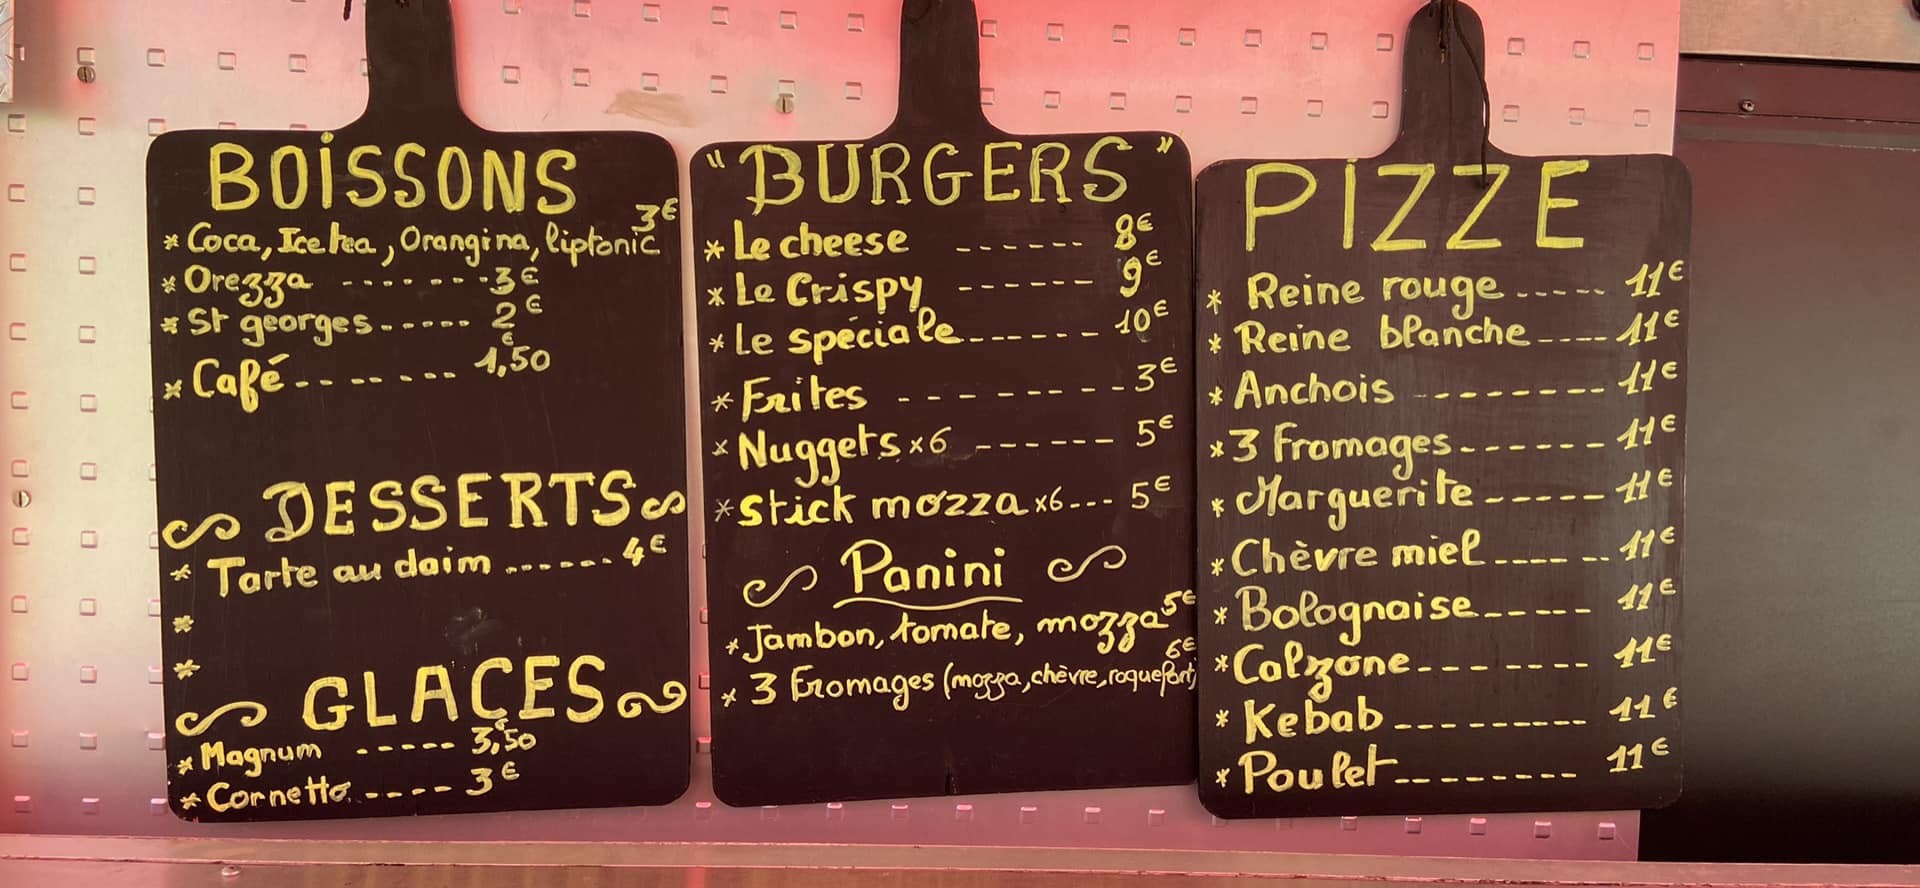 BOISSONS
* Coca, Ice tea, Orangina, liptonic 3€
* Orezza ------- 3€
* St georges ----- 2€
* Café ------- 1,50€
DESSERTS
* Tarte au daim ------ 4€
*
*
GLACES
* Magnum ----- 3,50€
* Cornetto ---- 3€
"BURGERS"
* Le cheese ------ 8€
* Le Crispy ------ 9€
* Le spéciale ------ 10€
* Frites ------- 3€
* Nuggets x6 ------ 5€
* Stick mozza x6 --- 5€
Panini
* Jambon, tomate, mozza 5€
* 3 Fromages (mozza, chèvre, roquefort) 6€
PIZZE
* Reine rouge ----- 11€
* Reine blanche ---- 11€
* Anchois -------- 11€
* 3 Fromages ------ 11€
* Marguerite ----- 11€
* Chèvre miel ------ 11€
* Bolognaise ----- 11€
* Calzone ------- 11€
* Kebab --------- 11€
* Poulet -------- 11€